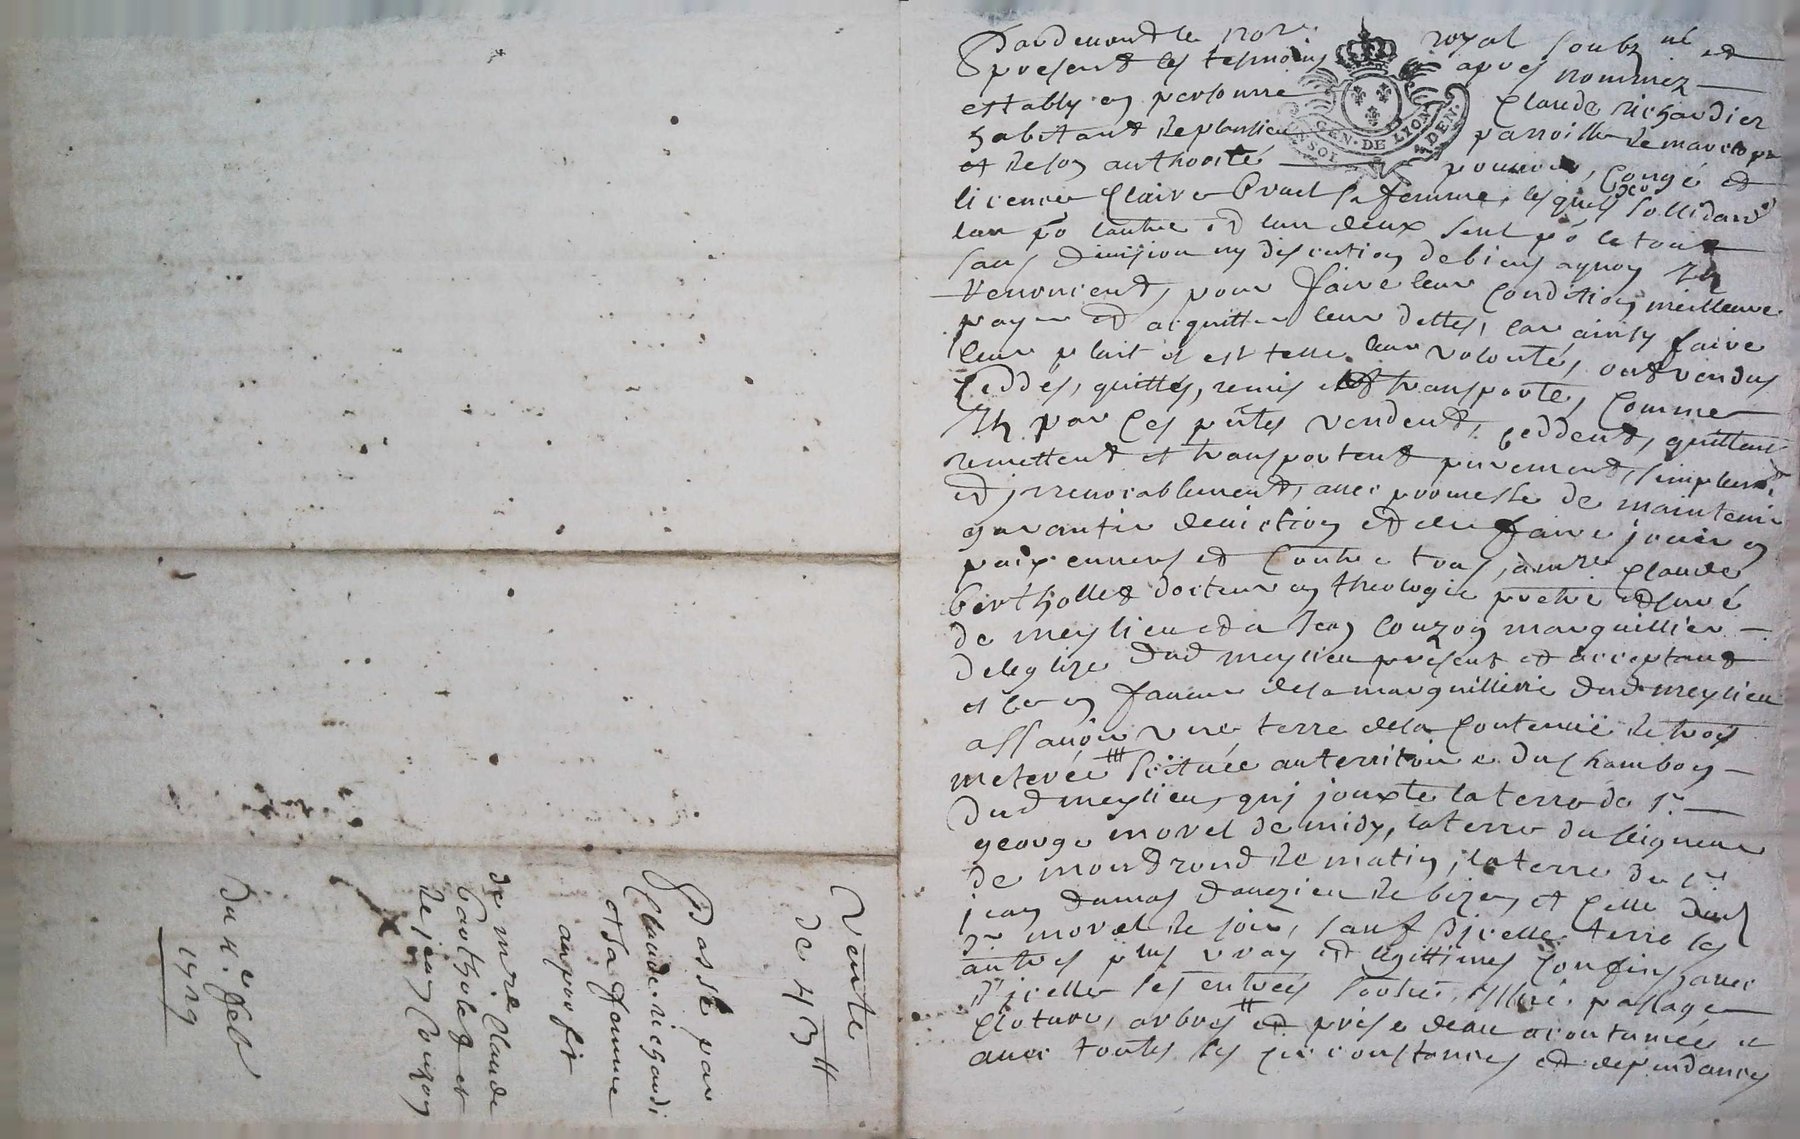 Vente
de 43 ₶
Passé par
Claude richardi
et sa femme
au profit
de mre Claude
Bartholet et
de jean Couzon
Du xe feb
1729
Pardevant le notre royal soubzné et
presents les tesmoins apres nommez
estably en personne Claude richardier
habitant de parroisse de marclop
et de son authorité pouvoir, congé et
licence Claire Bruel sa femme, lesquels sollidairt
lun po lautre et lun deux seul po le tout
sans division ny discution de biens aquoy ilz
renoncent, pour faire leur condition meilleure
payer et acquitter leur dettes, car ainsy faire
leur plait et est telle leur volonté, ont vendus
ceddés, quittés, remis et transporté, comme
ilz par ces pntes vendent, ceddent, quittent
remettent et transportent purement, simplemt
et jrrevocablement, avec promesse de maintenir
garantir deviction et den faire jouir en
paix envers et contre tous, à mre Claude
bertholled docteur en theologie prebtre et curé
de meylieu et a Jean Couzon marguillier
deleglize dud meylieu present et acceptant
et ce en faveur de la marguillerie dud meylieu
assavoir une terre de la contenue de trois
meterée scituée au territoire du Chambon
dud meylieu, qui jouxte la terre de sr
george morel de midy, la terre du seigneur
de mondrond de matin, la terre de sr
jean dumas danezieu de bize, et celle dud
sr morel de soir, sauf dicelle terre les
autres plus vray et legittimes confins, avec
dicelle ses entrées sortie, passage
cloture, arbres et prise deau acoutumée et
avec toutes les circonstances et dependances
GEN. DE LYON
SOL
DEN.